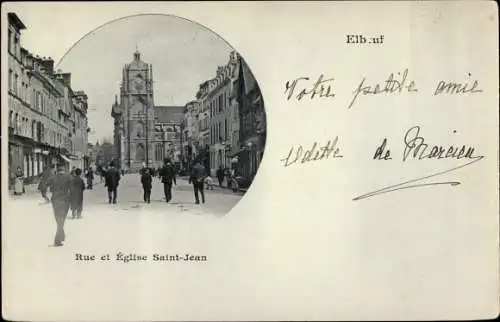 Elbœuf
Votre petite amie
Odette de Marcieu
Rue et Église Saint-Jean